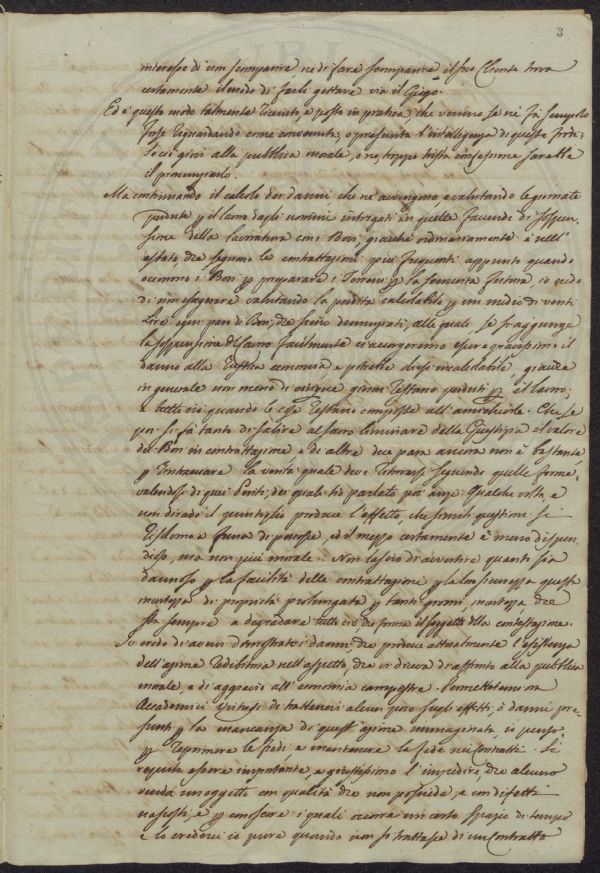 3
interesse di non scomparire ne di fare scomparire il suo Cliente trova
certamente il modo di farli gettare via il Giogo.
Ed è questo modo talmente ricevuto, e posto in pratica, che veniva se ne fà scrupolo
forse riguardando come convenuta, o presunta l'intelligenza di queste frodi:
se ciò giovi alla pubblica morale, o no, troppo trista confessione sarebbe
il pronunziarlo.
Ma continuando il calcolo dei danni, che ne avvengono, e valutando le giornate
perdute p il lavoro dagli uomini intrigati in quelle faccende di sospen-
sione della lavoratura con i Bovi, giacchè ordinariamente è nell'
estate, che seguono le contrattazioni più frequenti appunto quando
occorrono i Bovi p preparare i Terreni p la sementa futura, io credo
di non esagerare valutando la perdita calcolabile p un medio di venti
Lire ogni paro di Bovi, che siano denunziati, alle quali se si aggiunge
la sospensione del lavoro facilmente ci accorgeremo essere gravissimo il
danno alla Rustica economia e potrebbe dirsi incalcolabile, giacchè
in generale non meno di cinque giorni restano perduti p il lavoro;
e tutto ciò quando le cose restano composte all'amichevole. Che se
poi si fà tanto di salire al sacro liminare della Giustizia il valore
dei Bovi in contrattazione e di altre due para ancora non è bastante
p rintracciare la verità quale deve ritrovarsi seguendo quelle forme,
valendosi di quei Periti, dei quali hò parlato poc'anzi. Qualche volta, e
non di rado il puntiglio produce l'effetto, che simili questioni si
risolvono a furia di percosse, ed il mezzo certamente è meno dispen-
dioso, ma non più morale. Non lascio di avvertire quanto sia
dannoso p la facilità delle contrattazioni p la loro sicurezza questa
incertezza di proprietà prolungata p tanti giorni, incertezza che
stà sempre a degradare tutto ciò che forma il soggetto della contestazione.
Io credo di avervi dimostrato i danni che produce attualmente l'esistenza
dell'azione redibitoria nell'aspetto, che vi dicevo di affronto alla pubblica
morale, e di aggravio all'economia campestre. Permettetemi ora
Accademici Virtuosi di trattenervi alcun poco sugli effetti, ò danni pre-
sunti p la mancanza di quest'azione immaginata, io penso,
p reprimere le frodi e mantenere la fede nei Contratti. Si
reputa essere importante, e giustissimo l'impedire, che alcuno
venda un oggetto con qualità che non possiede, e con difetti
nascosti, e p conoscere i quali occorra un certo spazio di tempo
e io crederei ciò pure quando non si trattasse di un Contratto